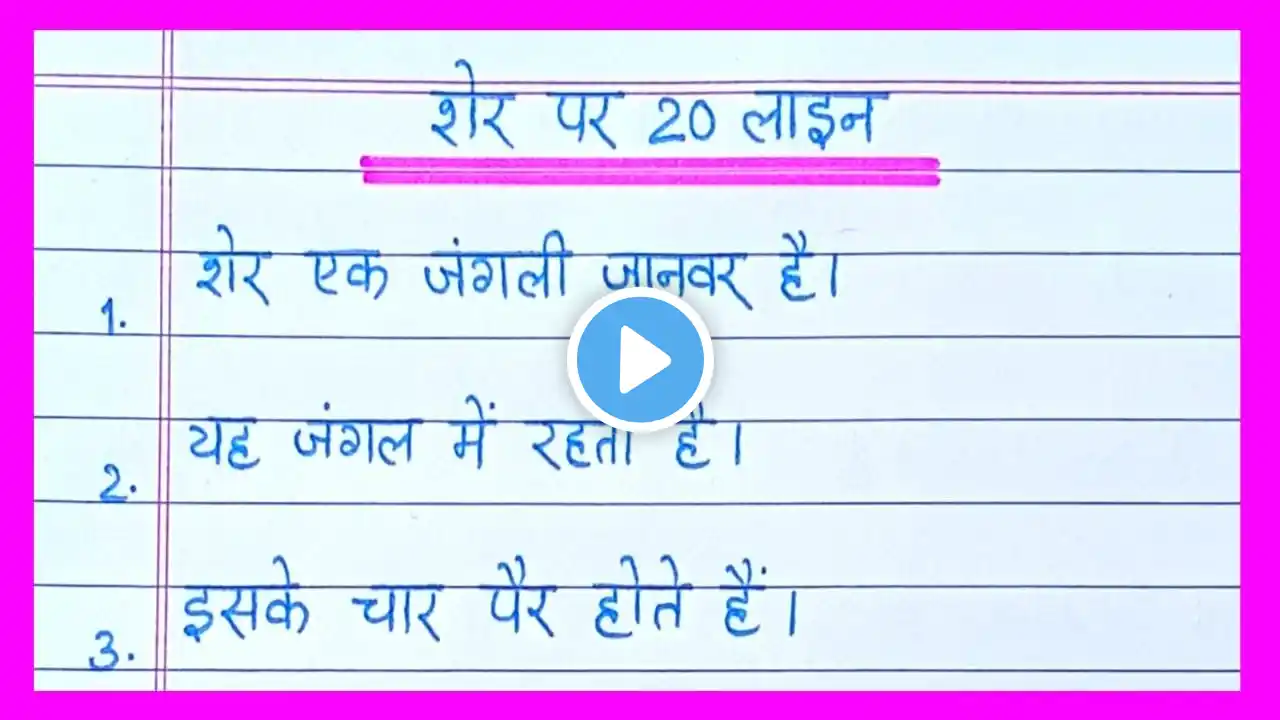 शेर पर 20 लाइन
1. शेर एक जंगली जानवर है।
2. यह जंगल में रहता है।
3. इसके चार पैर होते हैं।